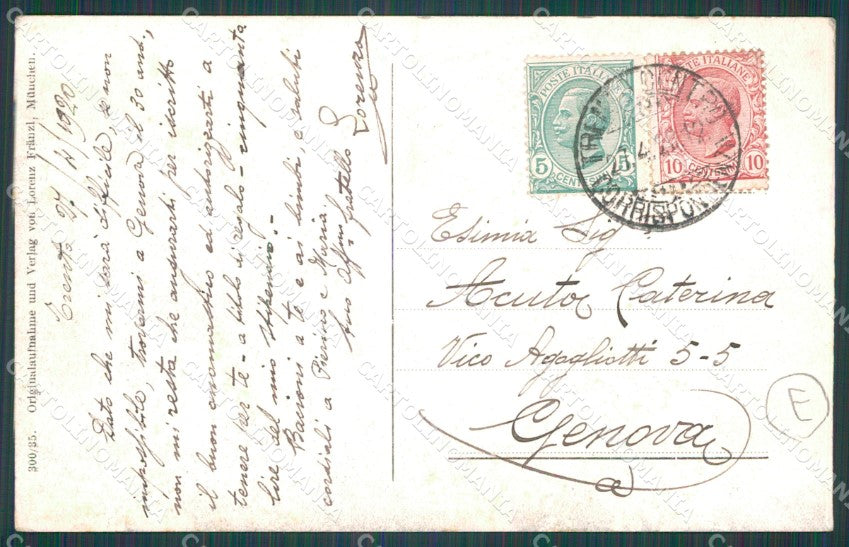 300/35. Originalaufnahme und Verlag von Lorenz Fränzl, München.
Trento 27/4/1920
Dato che mi sarà difficile, se non
impossibile, trovarmi a Genova il 30 and.,
non mi resta che augurarti per iscritto
il buon onomastico ed autorizzarti a
tenere per te - a titolo di regalo - cinquanta
lire del mio stipendio. -
Bacioni a te e ai bimbi, e saluti
cordiali a Pierino e Maria
tuo aff. fratello
Lorenzo
POSTE ITALIANE
5 CENTESIMI 5
POSTE ITALIANE
10 CENTESIMI 10
TRENTO
CORRISPOND
Esimia Sig
Acuto Caterina
Vico Agogliotti 5-5
Genova
E
CARTOLINOMANIA